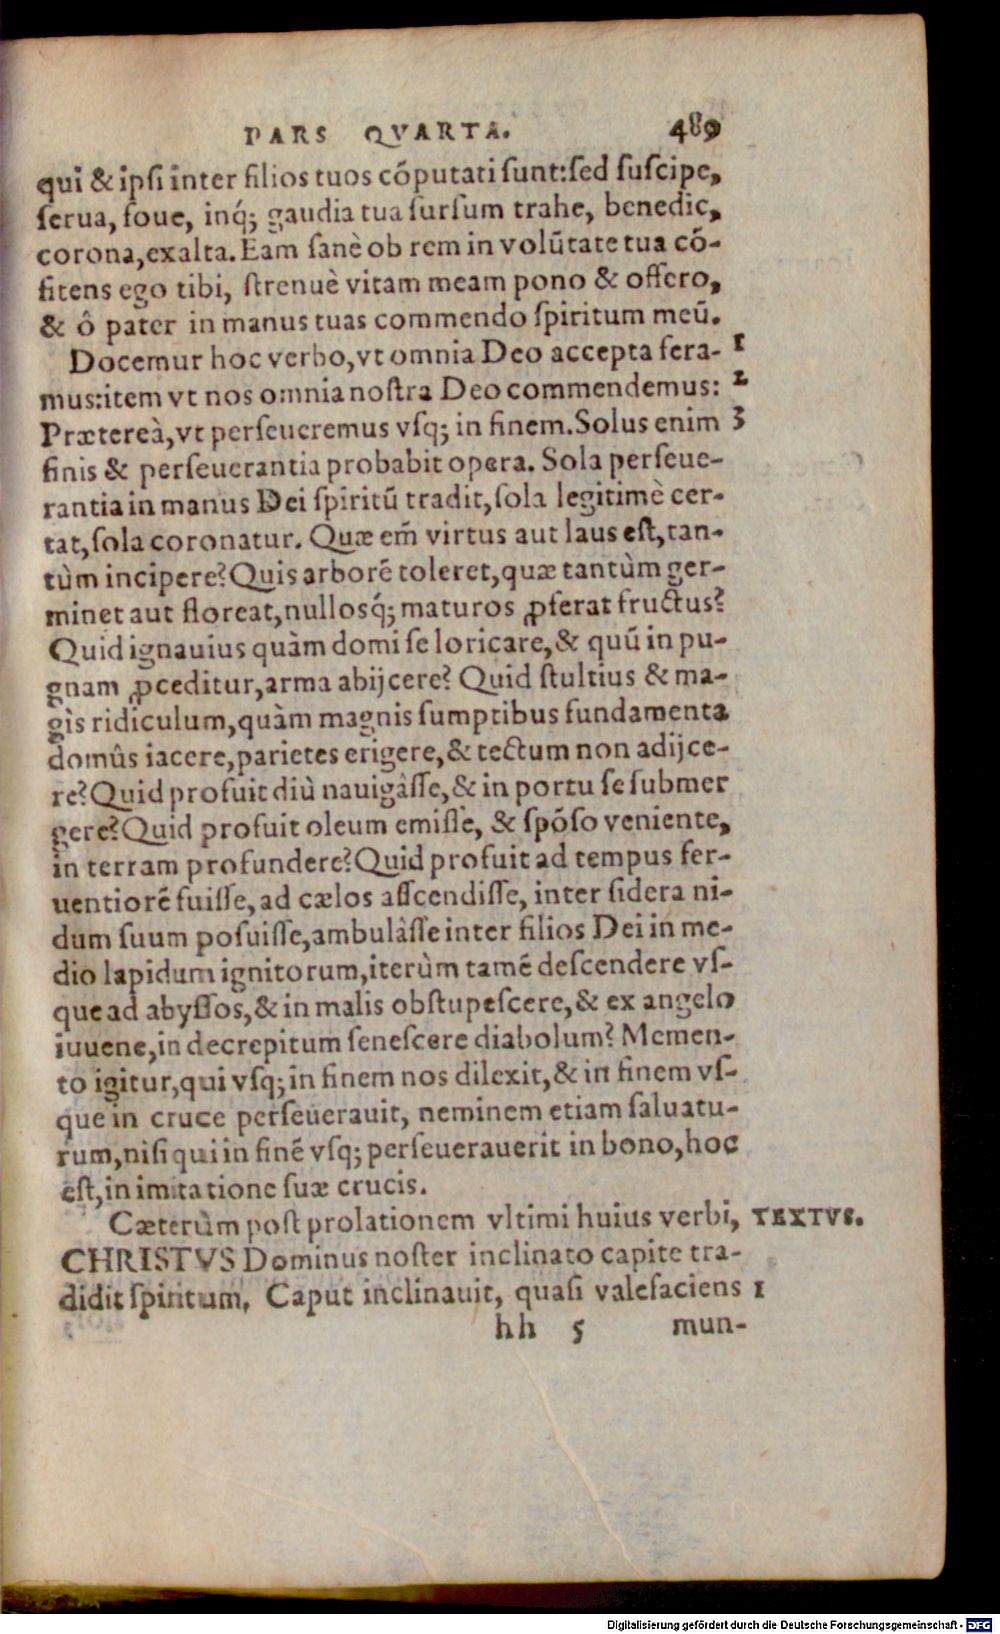 PARS QVARTA. 489
qui & ipsi inter filios tuos cōputati sunt:sed suscipe,
serua, foue, inq́; gaudia tua sursum trahe, benedic,
corona,exalta.Eam sanè ob rem in volūtate tua cō-
fitens ego tibi, strenuè vitam meam pono & offero,
& ô pater in manus tuas commendo spiritum meū.
Docemur hoc verbo,vt omnia Deo accepta fera- 1
mus:item vt nos omnia nostra Deo commendemus: 2
Prætereà,vt perseueremus vsq; in finem.Solus enim 3
finis & perseuerantia probabit opera. Sola perseue-
rantia in manus Dei spiritū tradit,sola legitimè cer-
tat,sola coronatur. Quæ em̄ virtus aut laus est,tan-
tùm incipere?Quis arborē toleret,quæ tantùm ger-
minet aut floreat,nullosq́; maturos ꝓferat fructus?
Quid ignauius quàm domi se loricare,& quū in pu-
gnam ꝓceditur,arma abijcere? Quid stultius & ma-
gìs ridiculum,quàm magnis sumptibus fundamenta
domûs iacere,parietes erigere,& tectum non adijce-
re?Quid profuit diù nauigâsse,& in portu se submer
gere?Quid profuit oleum emisse, & spōso veniente,
in terram profundere?Quid profuit ad tempus fer-
uentiorē fuisse,ad cælos asscendisse, inter sidera ni-
dum suum posuisse,ambulàsse inter filios Dei in me-
dio lapidum ignitorum,iterùm tamē descendere vs-
que ad abyssos,& in malis obstupescere,& ex angelo
iuuene,in decrepitum senescere diabolum? Memen-
to igitur,qui vsq; in finem nos dilexit,& in finem vs-
que in cruce perseuerauit, neminem etiam saluatu-
rum,nisi qui in finē vsq; perseuerauerit in bono,hoc
est,in imitatione suæ crucis.
Cæterùm post prolationem vltimi huius verbi, TEXTVS.
CHRISTVS Dominus noster inclinato capite tra-
didit spiritum. Caput inclinauit, quasi valefaciens 1
hh 5 mun-
Digitalisierung gefördert durch die Deutsche Forschungsgemeinschaft - DFG